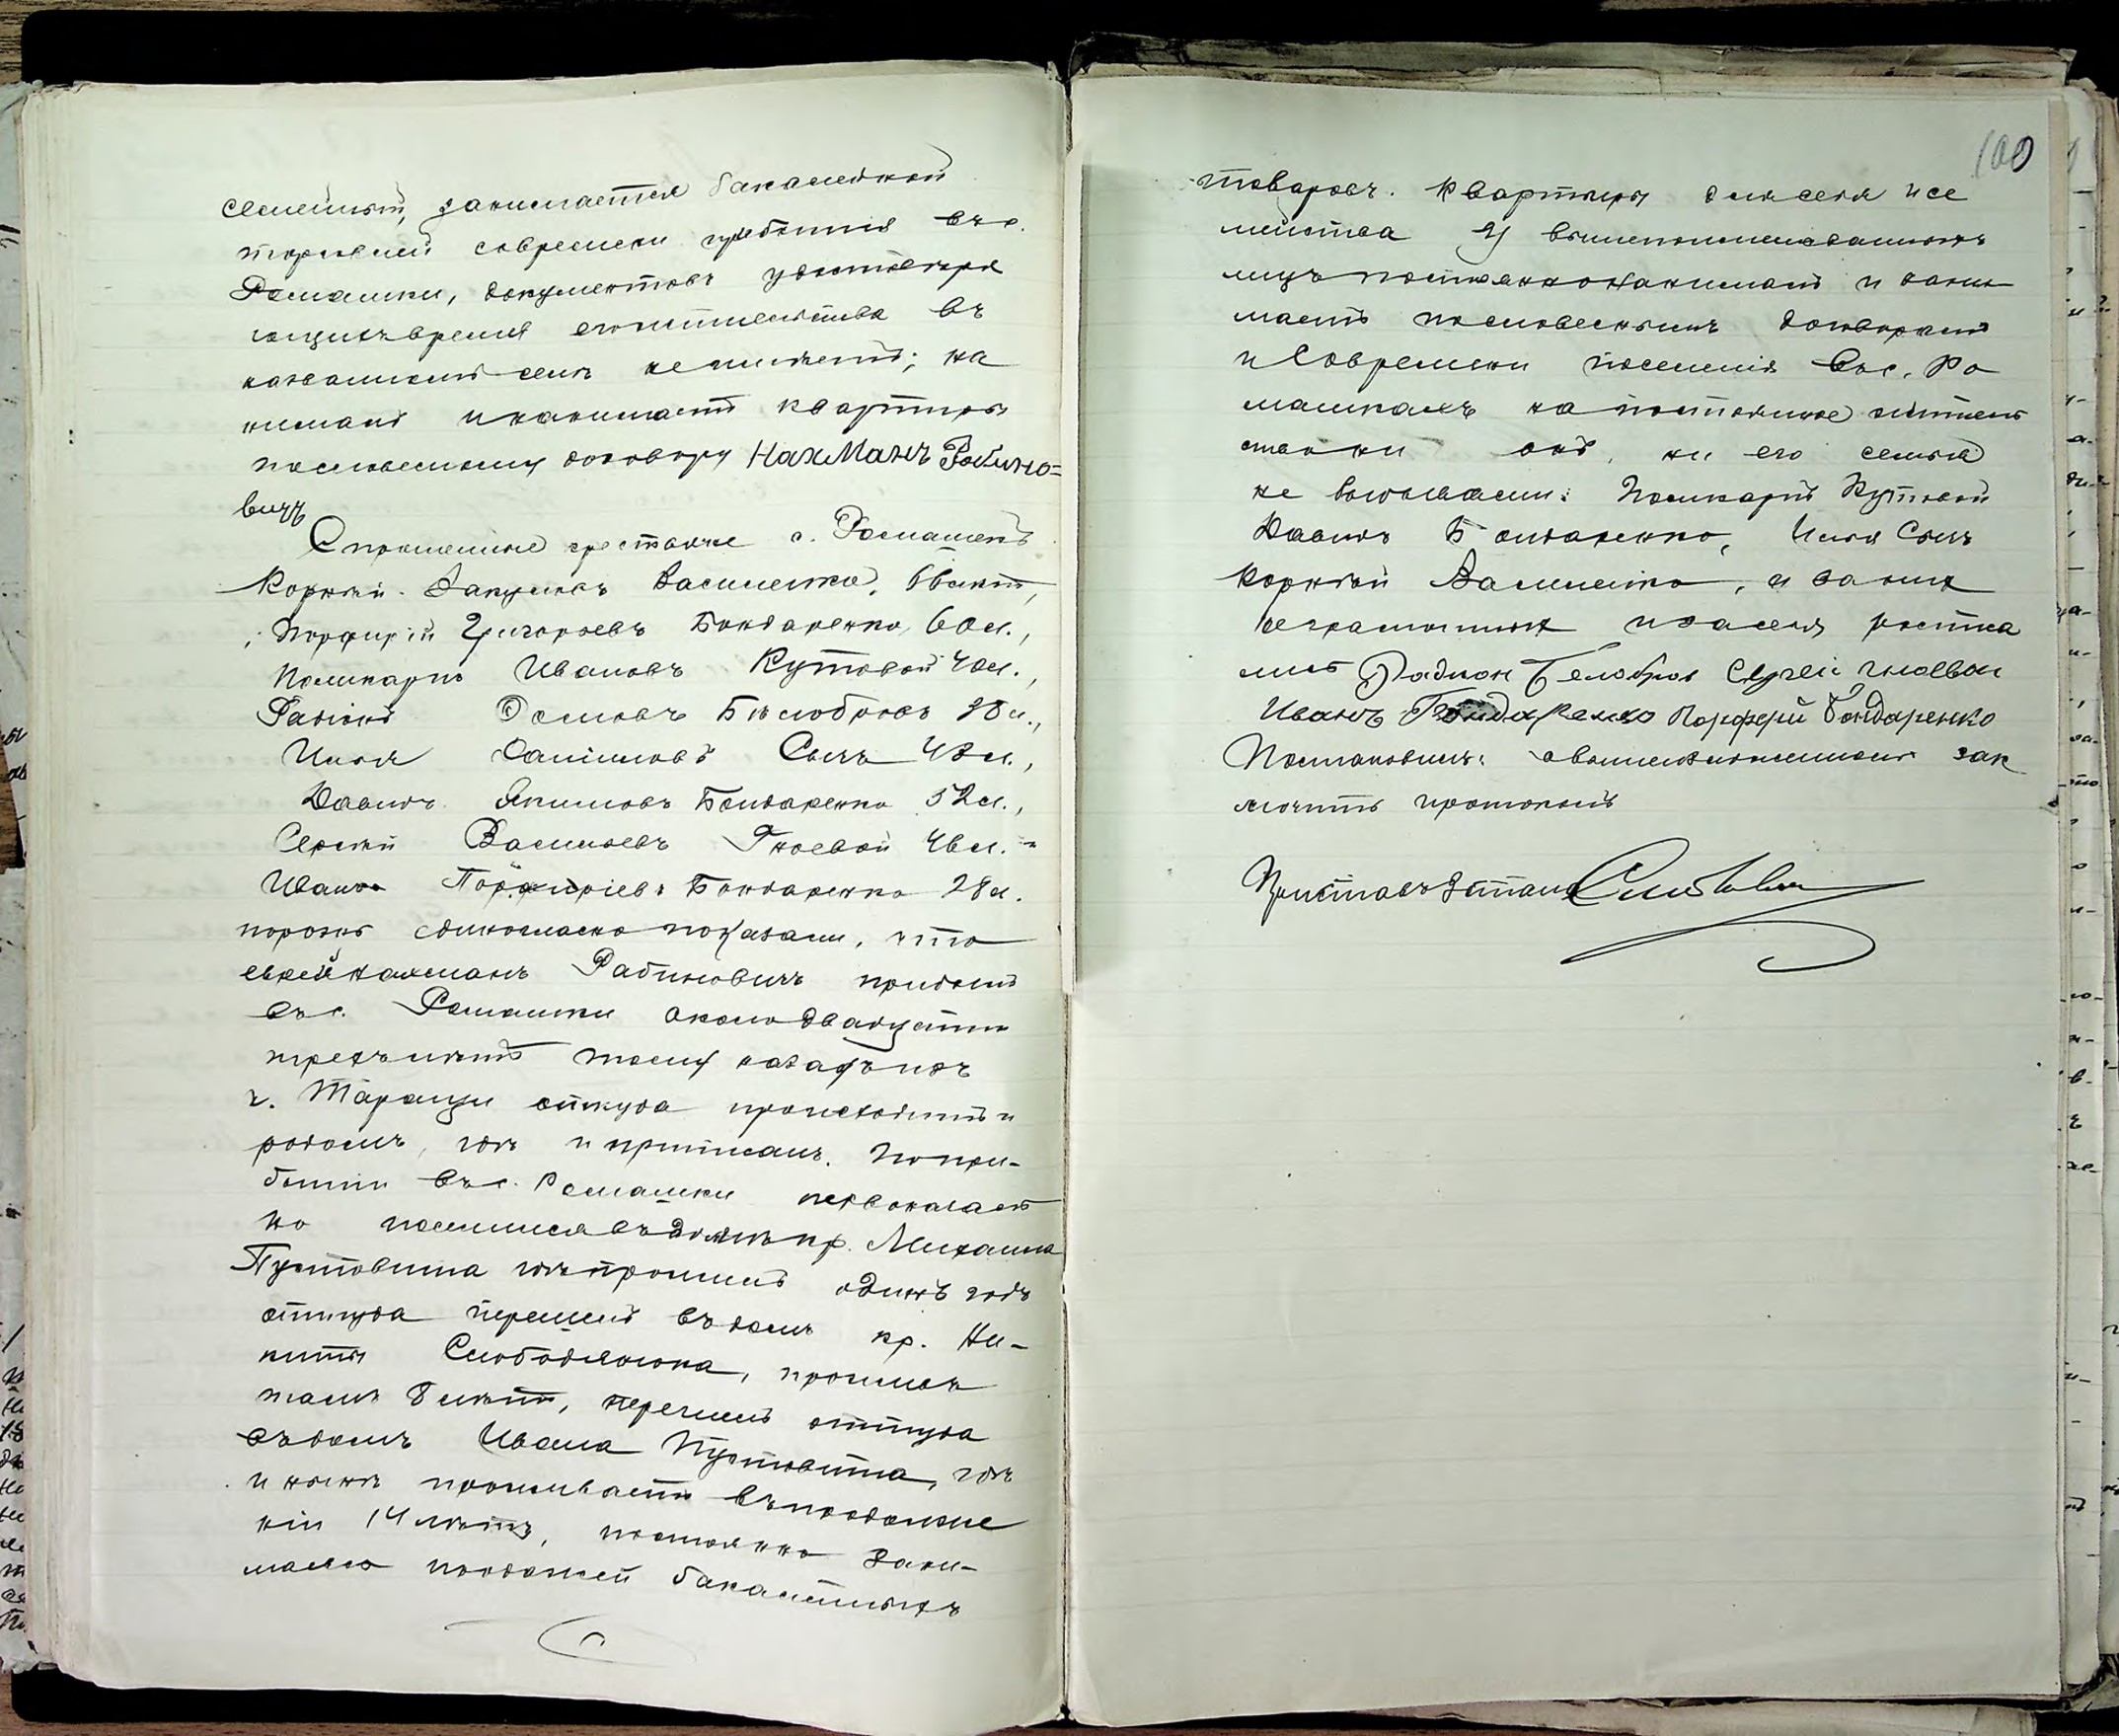 семейный, занимается бакалейной
торговлей современи прибытия въ с.
Ромашки, документовъ удостоверя
ющихъ время егожительства въ
названномъ селе не имеетъ; на
нималъ и нанимаетъ квартиры
пословесному договору НахМанъ Рабино=
вичъ
Спрошенные крестьяне с. Ромашекъ
Корний Вакуловъ Василенко, лет,
Порфирій Григорьевъ Бондаренко, 60 л.,
Поликарпъ Ивановъ Кутовой 40 л.,
Радіонъ Фомовъ Билобровъ 38 л.,
Илья Даніиловъ Сычъ 43 л.,
Давидъ Якимовъ Бондаренко 52 л.,
Сергѣй Васильевъ Гноевой 46 л. и
Иванъ Порфиріевъ Бондаренко 28 л.
порознь единогласно показали, что
еврей Нахманъ Рабиновичъ прибылъ
въ с. Ромашки около двадцати
трехъ лѣтъ тому назадъ изъ
г. Таращи откуда происходитъ и
родомъ, где и приписанъ. По при-
бытіи въ с. Ромашки первоначаль
но поселился въ домѣ кр. Михаила
Пустовита гдѣ прожилъ одинъ годъ
откуда перешелъ въ домъ кр. Ни-
киты Слободянюка, проживъ
тамъ 8 лѣтъ, перешелъ оттуда
въ домъ Ивана Пустовита, гдѣ
и нынѣ проживаетъ въ продолже
ніи 14 лѣтъ, постоянно зани-
маясь продажей бакалейныхъ
100
товаровъ. Квартиры для себя и се
мейства у вышепоименованныхъ
лицъ постоянно нанималъ и нани
маетъ пословеснымъ договорамъ
и современи поселенія въ с. Ро
машкахъ на постоянное житель
ство ни онъ, ни его семья
не выбывали: Поликарпъ Кутовой
Давидъ Бондаренко, Илья Сычъ
Корній Василенко, а за нихъ
неграмотныхъ и за себя росписа
лись Радион Белобров Сергеи Гноевои
Иванъ Бондаренко Порферй Бондаренко
Постановилъ: о вышеизложенномъ зак
лючить протоколъ
Приставъ 3 стана